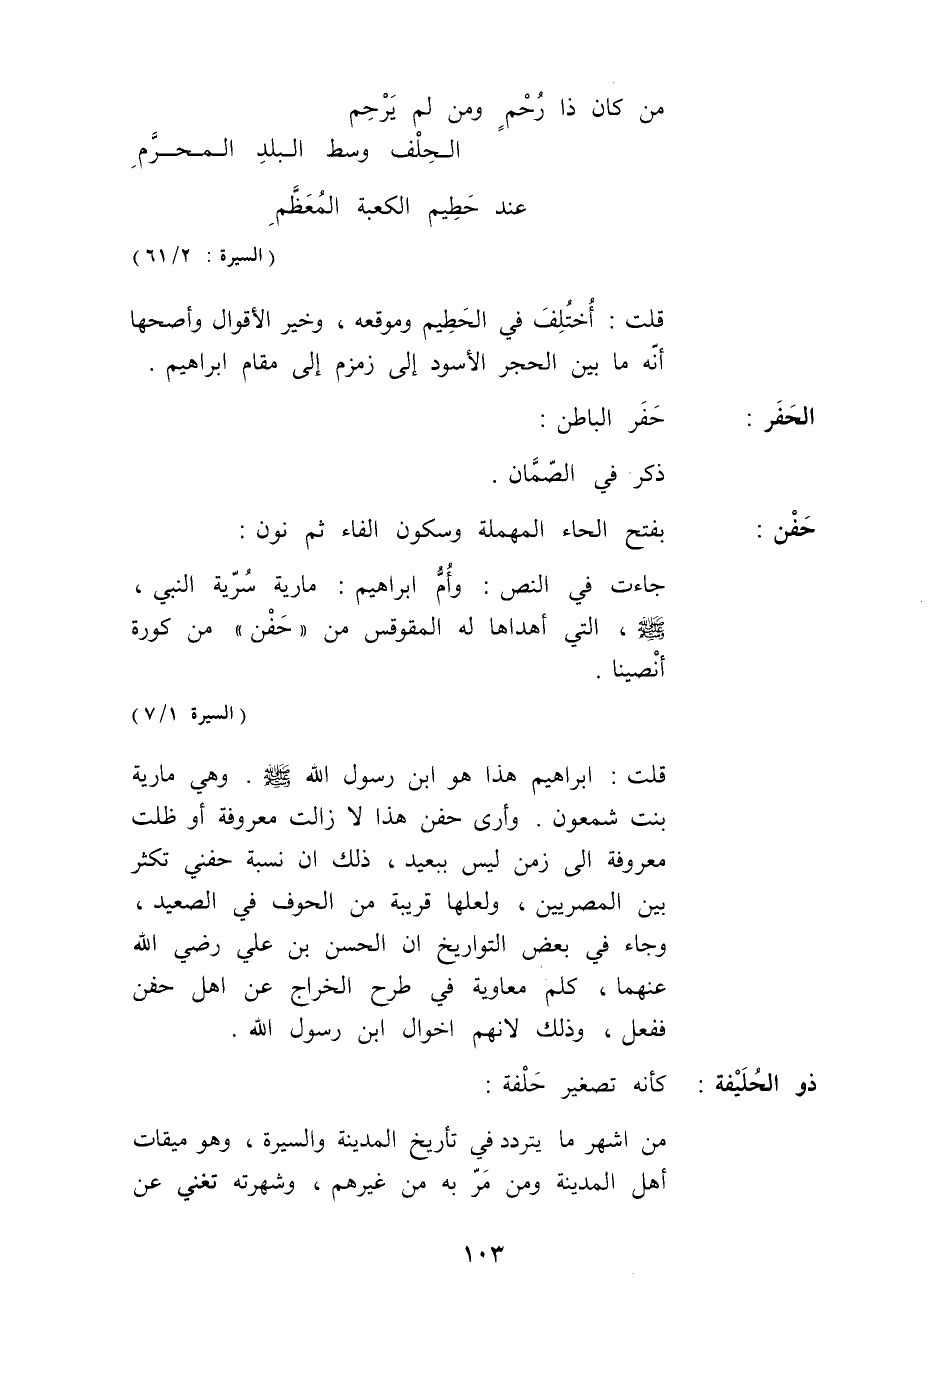 من كان ذا رُحْمٍ ومن لم يَرْحِم
الحِلْف وسط البلدِ المحرَّمِ
عند حَطِيم الكعبة المُعَظَّمِ
( السيرة : ٦١/٢ )
قلت : أُختُلِفَ في الحَطِيم وموقعه ، وخير الأقوال وأصحها
أنّه ما بين الحجر الأسود إلى زمزم إلى مقام ابراهيم .
الحَفَر : حَفَر الباطن :
ذكر في الصّمَّان .
حَفْن : بفتح الحاء المهملة وسكون الفاء ثم نون :
جاءت في النص : وأُمُّ ابراهيم : مارية سُرّية النبي ،
ﷺ ، التي أهداها له المقوقس من « حَفْن » من كورة
أنْصينا .
( السيرة ٧/١ )
قلت : ابراهيم هذا هو ابن رسول الله ﷺ . وهي مارية
بنت شمعون . وأرى حفن هذا لا زالت معروفة أو ظلت
معروفة الى زمن ليس ببعيد ، ذلك ان نسبة حفني تكثر
بين المصريين ، ولعلها قريبة من الحوف في الصعيد ،
وجاء في بعض التواريخ ان الحسن بن علي رضي الله
عنهما ، كلم معاوية في طرح الخراج عن اهل حفن
ففعل ، وذلك لانهم اخوال ابن رسول الله .
ذو الحُلَيْفة : كأنه تصغير حَلْفة :
من اشهر ما يتردد في تأريخ المدينة والسيرة ، وهو ميقات
أهل المدينة ومن مَرّ به من غيرهم ، وشهرته تغني عن
١٠٣